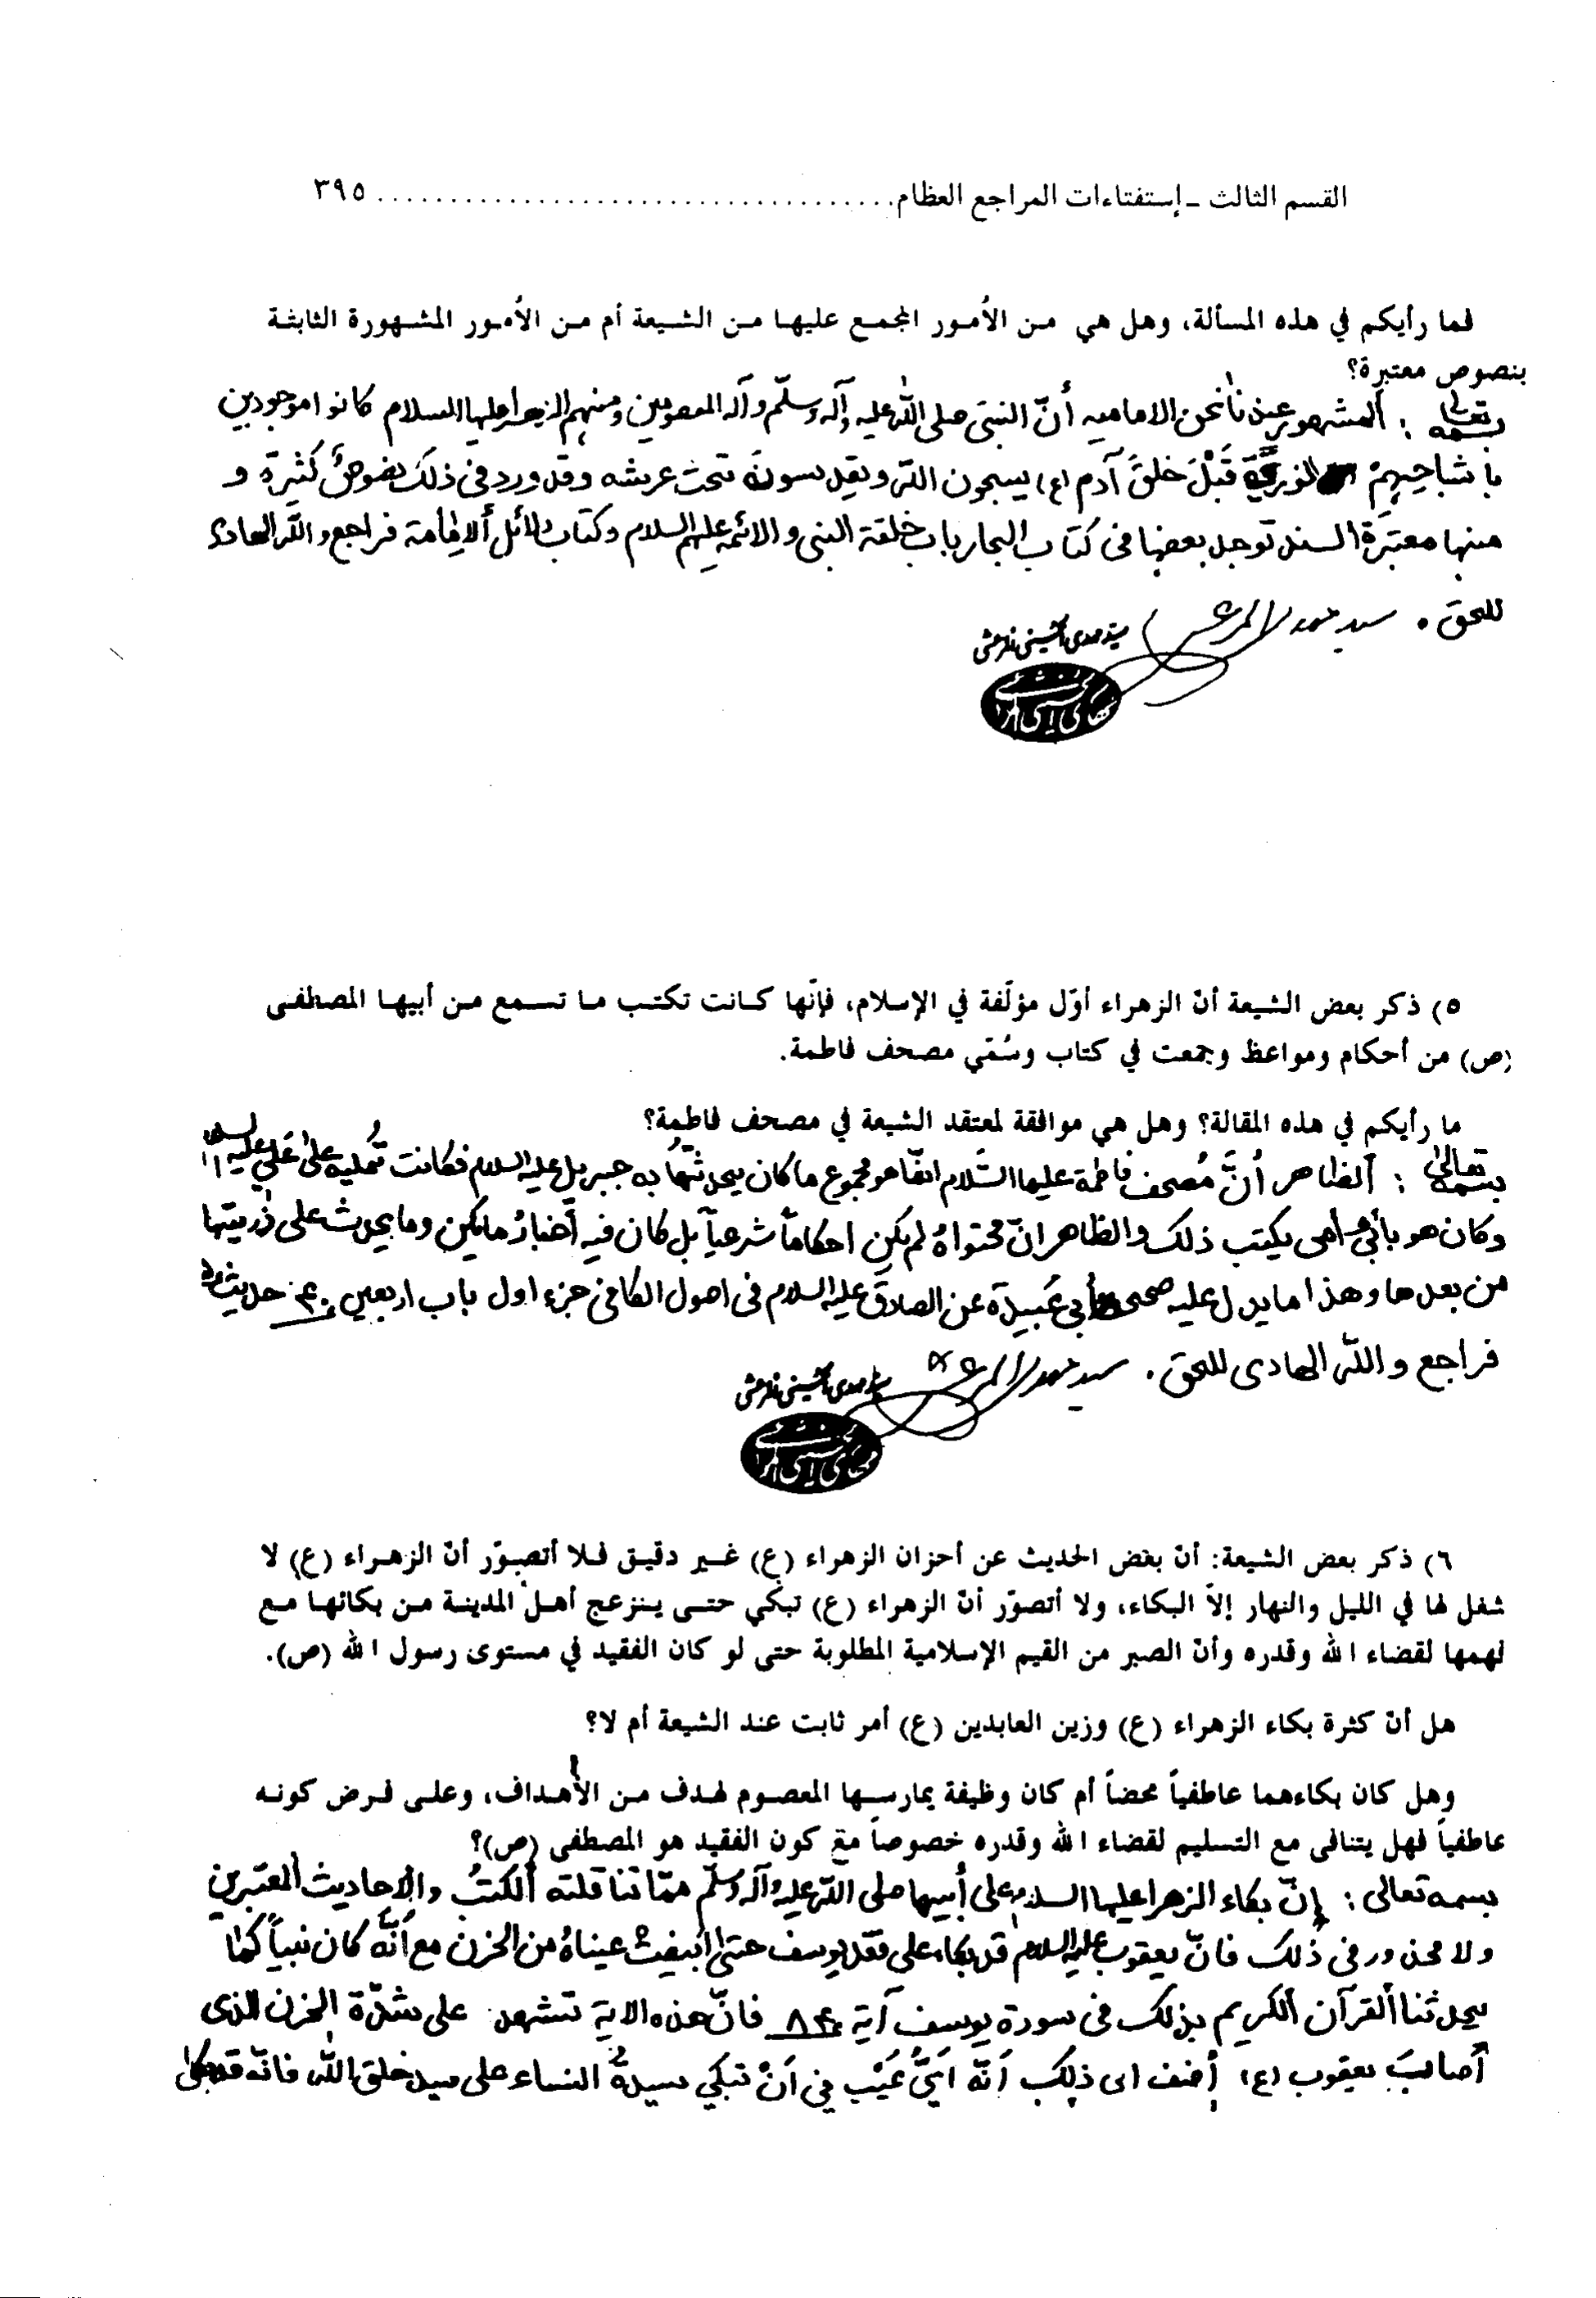 القسم الثالث ـ إستفتاءات المراجع العظام .................................... ٣٩٥
فما رأيكم في هذه المسألة، وهل هي من الأُمور المجمع عليها من الشيعة أم من الأُمور المشهورة الثابتة
بنصوص معتبرة؟
بسمه تعالى : ألمشهور عندنا نحن الامامية أنّ النبيّ صلى الله عليه وآله وسلّم وآله المعصومين ومنهم الزهراء عليها السلام كانوا موجودين
باشباحِهِمْ النوريّة قَبْلَ خلقَ آدم (ع) يسبحون الله ويقدسونَهُ تحت عرشه وقد ورد في ذلك نصوصٌ كثيرة و
منها معتبرة السند توجد بعضها في كتاب البحار باب خلقة النبي والائمة عليهم السلام وكتاب دلائل ألامامة فراجع والله الهادي
للحق . سيد مهدي المرعشي
سيد مهدى الحسيني المرعشي
٥) ذكر بعض الشيعة أنّ الزهراء أوّل مؤلّفة في الإسلام، فإنّها كانت تكتب ما تسمع من أبيها المصطفى
(ص) من أحكام ومواعظ وجمعت في كتاب وسُمّي مصحف فاطمة.
ما رأيكم في هذه المقالة؟ وهل هي موافقة لمعتقد الشيعة في مصحف فاطمة؟
بسمه تعالى : ألظاهر أنَّ مُصحف فاطمة عليها السّلام انّما هو مجموع ما كان يحدّثها به جبريل عليه السلام فكانت تُمليه على عَليّ عليه السلام
وكان هو بأبي وأمي يكتب ذلك والظاهر انّ محتواهُ لم يكن احكاماً شرعياً بل كان فيه أخبارُ ما يكون وما يحدث على ذريتها
من بعدها وهذا ما يدل عليه أبي عَبيدة عن الصادق عليه السلام في اصول الكافي جزء اول باب اربعين ٤٠ حديث
فراجع والله الهادى للحق . سيد مهدي المرعشي
سيد مهدى الحسيني المرعشي
٦) ذكر بعض الشيعة: أنّ بعض الحديث عن أحزان الزهراء (ع) غير دقيق فلا أتصوّر أنّ الزهراء (ع) لا
شغل لها في الليل والنهار إلاّ البكاء، ولا أتصوّر أنّ الزهراء (ع) تبكي حتى ينزعج أهل المدينة من بكائها مع
فهمها لقضاء الله وقدره وأنّ الصبر من القيم الإسلامية المطلوبة حتى لو كان الفقيد في مستوى رسول الله (ص).
هل أنّ كثرة بكاء الزهراء (ع) وزين العابدين (ع) أمر ثابت عند الشيعة أم لا؟
وهل كان بكاءهما عاطفياً محضاً أم كان وظيفة يمارسها المعصوم لهدف من الأهداف، وعلى فرض كونه
عاطفياً فهل يتنافى مع التسليم لقضاء الله وقدره خصوصاً مع كون الفقيد هو المصطفى (ص)؟
بسمه تعالى : إنّ بكاء الزهرا عليها السلام على أبيها صلى الله عليه وآله وسلّم ممّا تناقلته ألكتبُ والأحاديث المعتبرين
ولا محذور في ذلك فانّ يعقوب عليه السلام قد بكاء على فقد يوسف حتى ابيضت عيناهُ من الحزن مع أنّه كان نبياً كما
يحدثنا ألقرآن الكريم بذلك في سورة يوسف آية ٨٤ فانّ هذه الاية تشهد على شدّة الحزن الذي
أصابَ يعقوب (ع) أضف الى ذلك أنّه ايُّ عَيْب في أنْ تبكي سيدةُ النساء على سيد خلق الله فانّه قد بكى